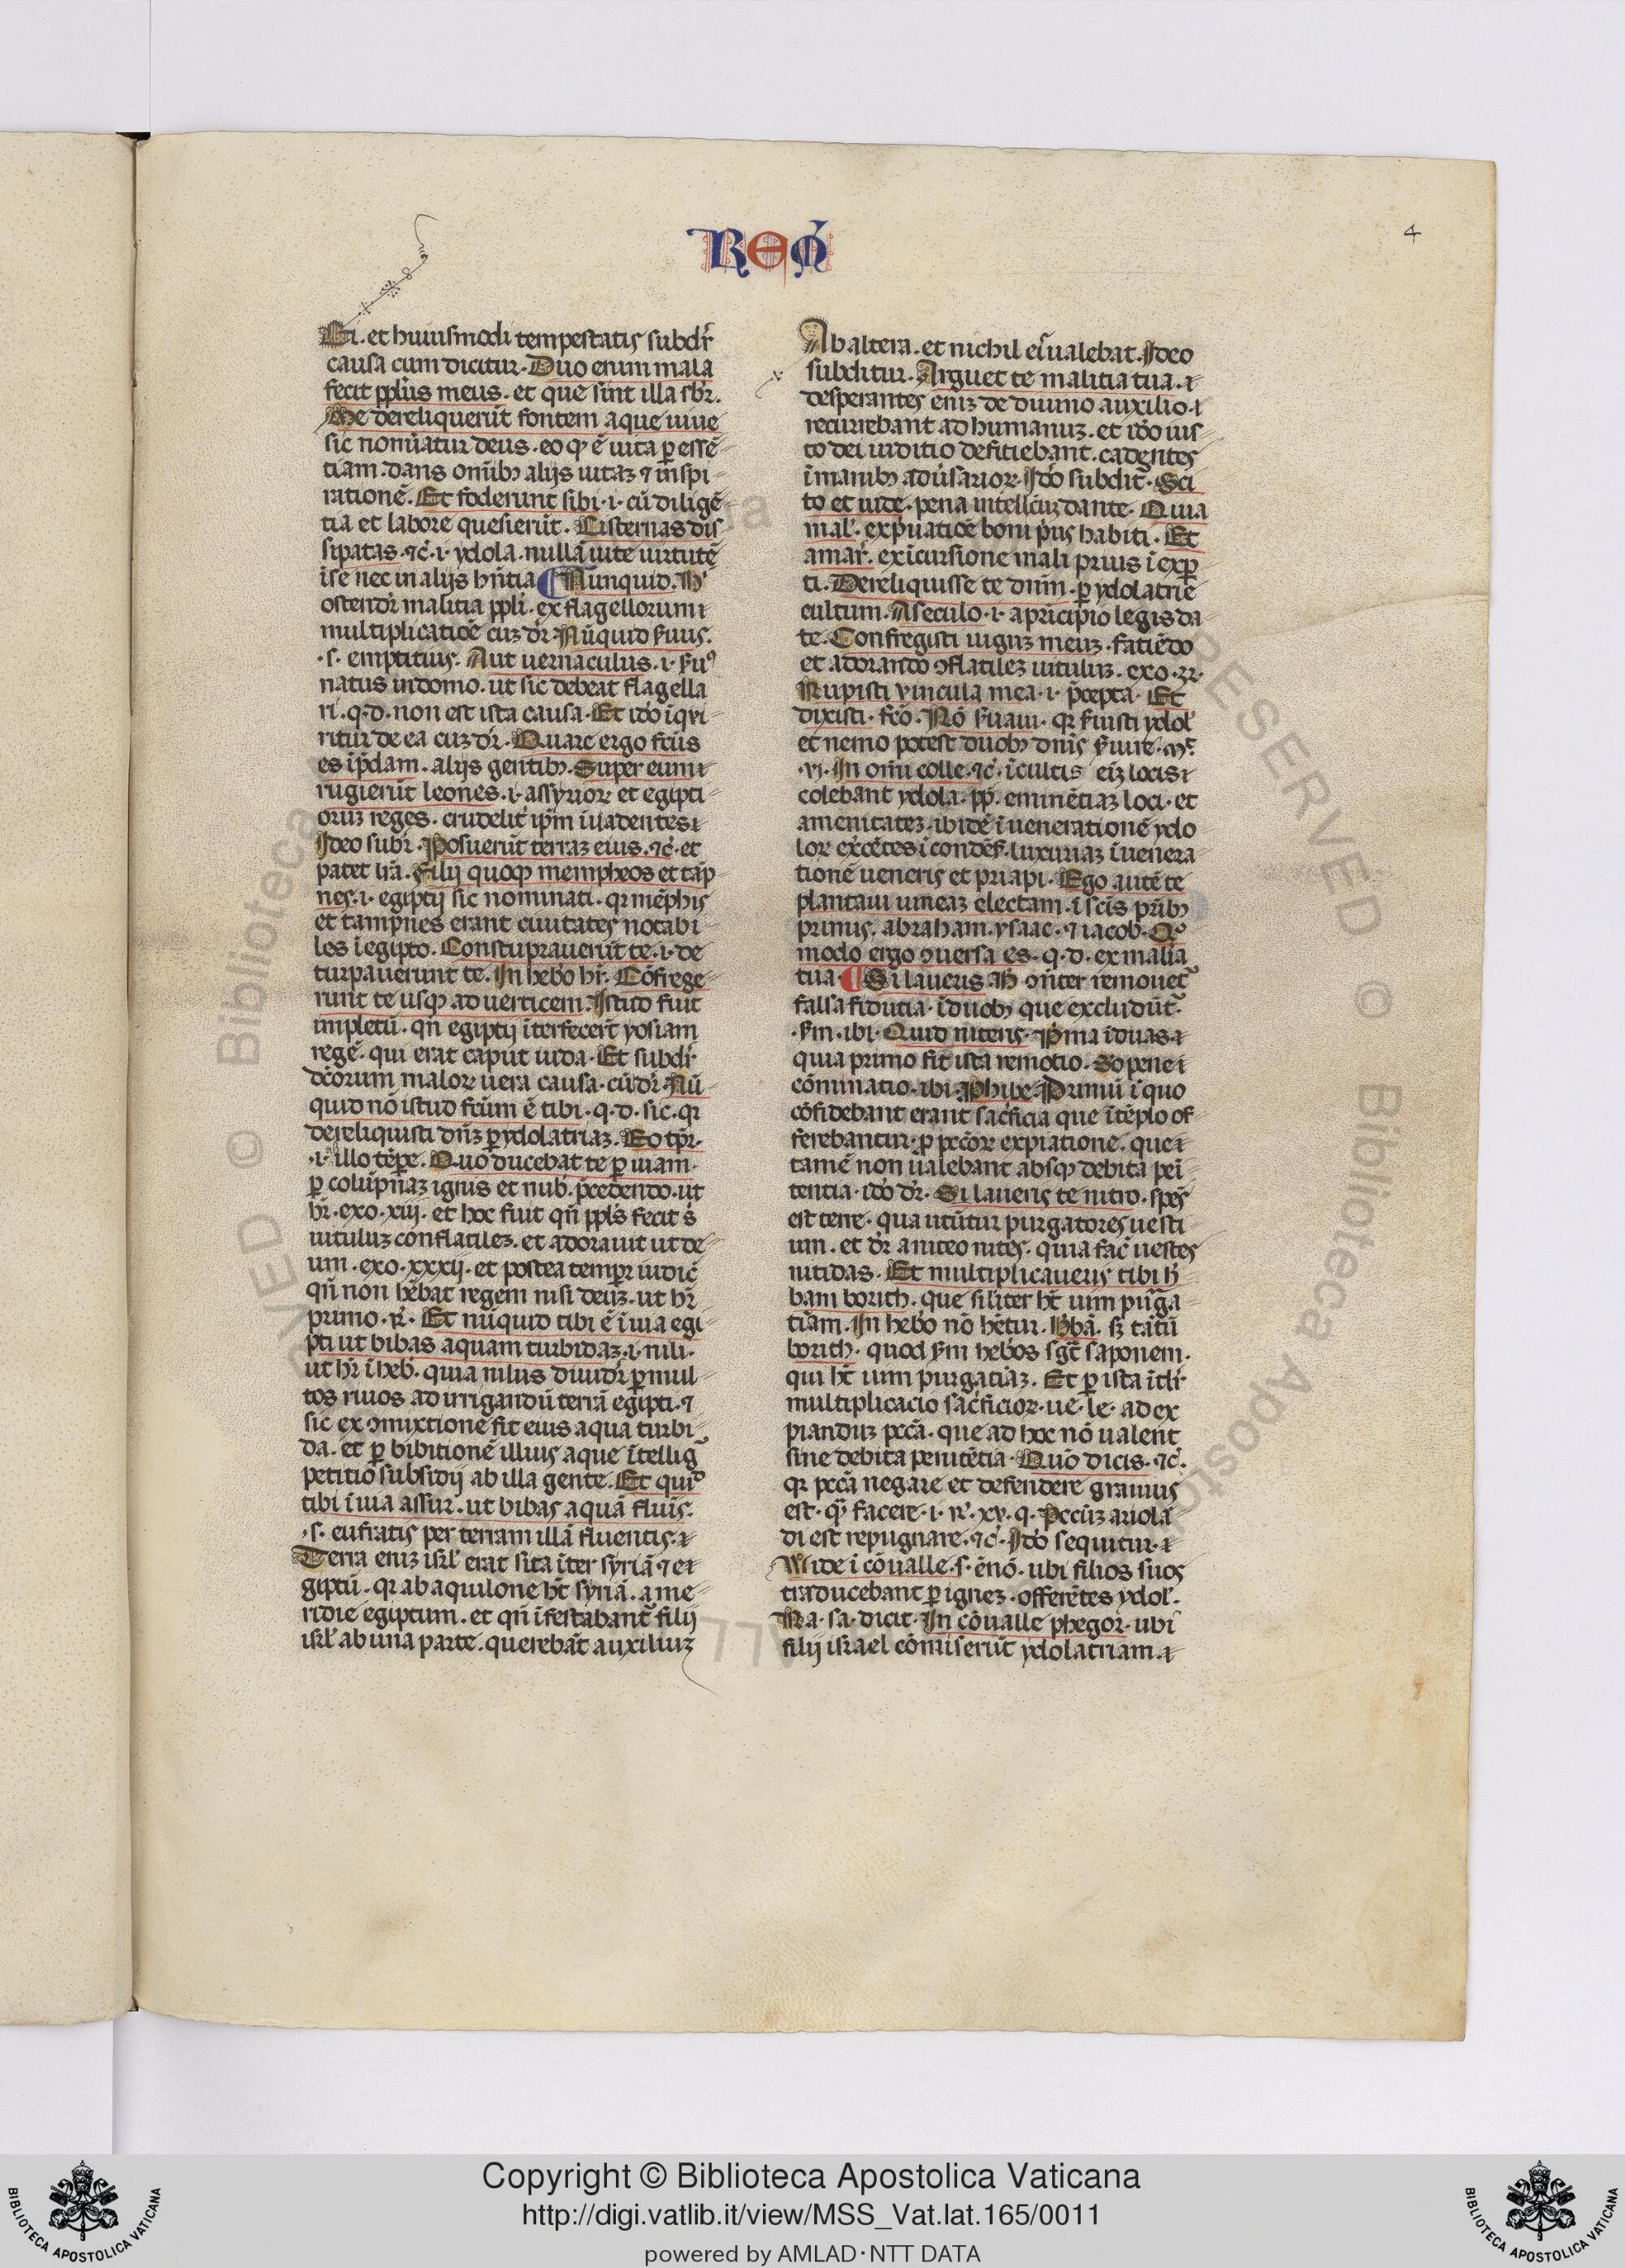 REM̄
4
ti. et huiusmodi tempestatis subdr̄
causa cum dicitur. Duo enim mala
fecit pplūs meus. et que sint illa sb̄r.
Me dereliquerūt fontem aque uiue
sic nomīatur deus. eo qꝫ ē uita ꝑ essē
tiam. dans omībꝫ alijs uitaꝫ ⁊ inspi
rationē. Et foderunt sibi .i. cū diligē
tia et labore quesierūt. Cisternas dis
sipatas. ⁊c̄ .i. ydola. nullā uite uirtutē
ī se nec in alijs hn̄tia ¶ Nunquid. h̓
ostendr̄ malitia ppl̄i. ex flagellorum
multiplicatiōe cuꝫ dr̄. Nūquid ẜuus.
.s. emptitius. Aut uernaculus .i. ẜuꝰ
natus in domo. ut sic debeat flagella
ri. q. d. non est ista causa. Et idō īqri
ritur de ea cuꝫ dr̄. Quare ergo fc̄us
es ī p̄dam. alijs gentibꝫ. Super eum
rugierūt leones .i. assyrioꝝ et egipti
oruꝫ reges. crudelit̄ ip̄m īuadentes
Ideo subr̄. Posuerūt terraꝫ eius. ⁊c̄. et
patet lr̄a. Filij quoqꝫ mempheos et tāp
nes .i. egiptij sic nominati. qꝛ mēphis
et tampnes erant ciuitates notabi
les ī egipto. Constuprauerūt te .i. de
turpauerunt te. In hebō hr̄. Cōfrege
runt te usqꝫ ad uerticem. Istud fuit
impletū. qn̄ egiptij īterfecerūt yosiam
regē. qui erat caput iuda. Et subdr̄
dc̄orum maloꝝ uera causa. cū dr̄. Nū
quid nō istud fc̄um ē tibi. q. d. sic. qꝛ
dereliquisti dn̄ꝫ ꝑ ydolatriaꝫ. Eo tp̄r.
.i. illo tēpe. Quo ducebat te ꝑ uiam.
ꝑ colūpnaꝫ ignis et nub̄. p̄cedendo. ut
hr̄. exo. xiij. et hoc fuit qn̄ ppl̄s fecit s̄
uituluꝫ conflatileꝫ. et adorauit ut de
um. exo. xxxij. et postea tempr̄ iudic̄
qn̄ non hēbat regem nisi deūꝫ. ut hr̄
primo. r̄. Et nūquid tibi ē ī uia egi
pti ut bibas aquam turbidaꝫ .i. nili.
ut hr̄ ī heb̄. quia nilus diuidr̄ ꝑ mul
tos riuos ad irrigandū terrā egipti. ⁊
sic ex ꝯmixtione fit eius aqua turbi
da. et ꝑ bibitionē illius aque ītellig̃
petitiō subsidij ab illa gente. Et quiđ
tibi ī uia assur. ut bibas aquā fluuīs.
.s. eufratis per terram illā fluentis.
Terra eniꝫ isrl̄ erat sita īter syriā ⁊ e
giptū. qꝛ ab aquilone hꝫ̄ syriā. a me
ridie egiptum. et qn̄ īfestabant̃ filij
isrl̄ ab una parte. querebāt auxiliuꝫ
Ab altera. et nichil eīs ualebat. Ideo
subditur. Arguet te malitia tua.
desperantes eniꝫ de diuino auxilio.
recurrebant ad humanuꝫ. et idō ius
to dei iuditio defitiebant. cadentes
ī manibꝫ aduūsarioꝝ. Idō subdit̄. Sci
to et uide. pena intellc̄uꝫ dante. Quia
mal̄. ex p̄uatiōe boni pius habiti. Et
amar̄. ex īcursione mali prius īexꝑ
ti. Dereliquisse te dn̄m. ꝑ ydolatrie
cultum. A seculo .i. a prīcipio legis da
te. Confregisti iuguꝫ meuꝫ. fatiēdo
et adorando ꝯflatileꝫ uituluꝫ. exo. 32.
Rupisti uincula mea .i. p̄cepta. Et
dixisti. fc̄o. Nō ẜuiam. qꝛ ẜuisti ydol̄
et nemo potest duobꝫ dn̄is ẜuire. Mt̄.
.vj. In om̄i colle. ⁊c̄. ī cultis eīꝫ locis
colebant ydola. pp̄. eminētiaꝫ loci. et
amenitateꝫ. ibidē ī uenerationē ydo
loꝝ ex̄cētes ī condēs̄. luxuriaꝫ ī uenera
tionē ueneris et priapi. Ego autē te
plantaui uineaꝫ electam. ī sc̄is pr̄ibꝫ
primis. abraham. ysaac. ⁊ iacob. Qō
modo ergo ꝯuersa es. q. d. ex malīa
tua. ¶ Si laueris. h̓ ꝯn̄ter remouet̃
falsa fidutia. ī duobꝫ que excludūt̃.
.ẜm. ibi. Quid niteris. Pͥma ī duas
quia primo fit ista remotio. 2o pene
cōminatio. ibi. Phibe. Primū ī quo
cōfidebant erant sac̄ficia que ī tēplo of
ferebantur. ꝓ pc̄cōꝝ expiatione. que
tamē non ualebant absqꝫ debita peī
tentia. idō dr̄. Si laueris te nitro. spēs
est terre. qua utūtur purgatores uesti
um. et dr̄ a niteo nites. quia fac̄ uestes
nitidas. Et multiplicaueris tibi h̓
bam borith. que sil̄iter hꝫ̄ uim purga
tiuam. In hebō nō hētur. Hbā. sꝫ tātū
borith. quod ẜm hebōs sgt̄ saponem.
qui hꝫ̄ uim purgatiāꝫ. Et ꝑ ista ītl̄r
multiplicacio sac̄ficioꝝ. ue. le. ad ex
pianduꝫ pccā. que ad hoc nō ualent
sine debita penitētia. Quō dicis. ⁊c̄.
qꝛ pccā negare et defendere grauius
est. qꝫ̄ facere .i. R̄. xv. q. Pccūꝫ ariolā
di est repugnare. ⁊c̄. Idō sequitur.
Vide ī cōualle .s. ēnō. ubi filios suos
traducebant ꝑ igneꝫ. offerētes ydol̄.
Ra. sa. dicit. In cōualle phegor. ubi
filij israel cōmiserūt ydolatriam.
Copyright © Biblioteca Apostolica Vaticana
http://digi.vatlib.it/view/MSS_Vat.lat.165/0011
powered by AMLAD·NTT DATA
BIBLIOTECA APOSTOLICA VATICANA
BIBLIOTECA APOSTOLICA VATICANA